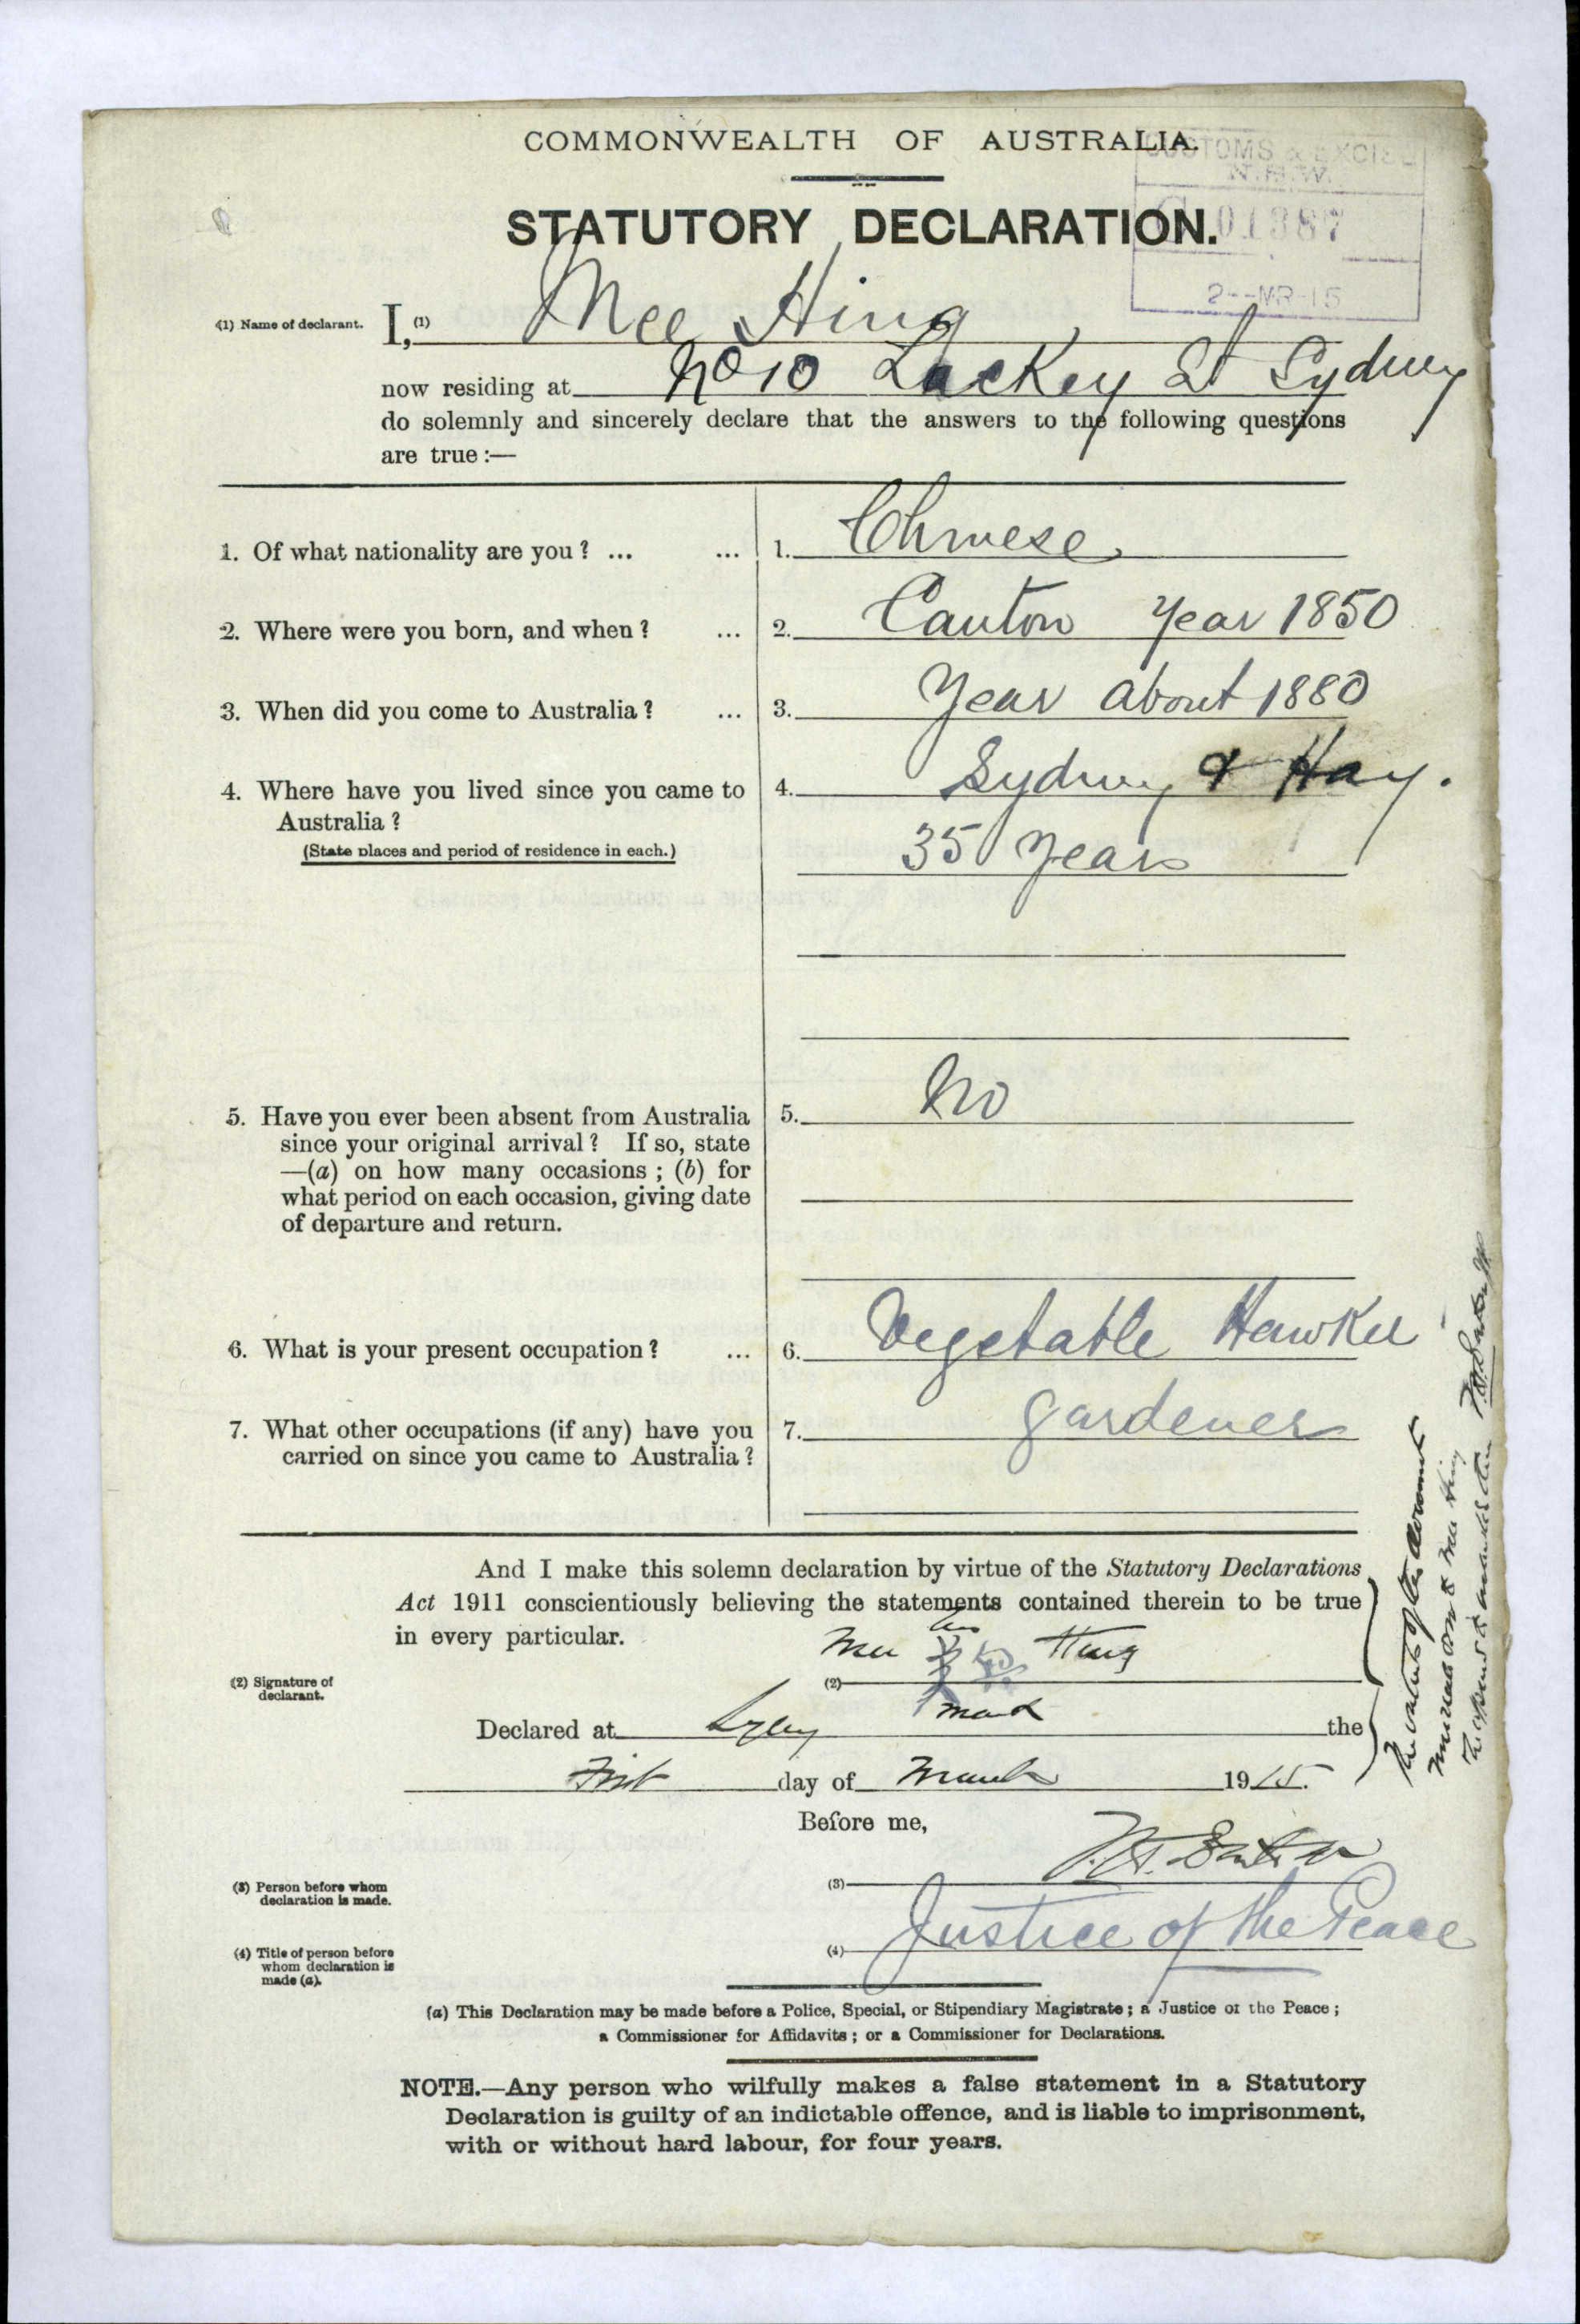 COMMONWEALTH OF AUSTRALIA.
CUSTOMS & EXCISE
N.S.W.
01387
2--MR-15
STATUTORY DECLARATION.
(1) Name of declarant.
I, (1) Mee Hing
now residing at No 10 Lackey St Sydney
do solemnly and sincerely declare that the answers to the following questions
are true :—
1. Of what nationality are you ? ... ... 1. Chinese
2. Where were you born, and when ? ... 2. Canton Year 1850
3. When did you come to Australia ? ... 3. Year about 1880
4. Where have you lived since you came to 4. Sydney & Hay.
Australia ?
(State places and period of residence in each.) 35 Years
5. Have you ever been absent from Australia 5. No
since your original arrival ? If so, state
—(a) on how many occasions ; (b) for
what period on each occasion, giving date
of departure and return.
6. What is your present occupation ? ... 6. Vegetable Hawker
7. What other occupations (if any) have you 7. gardener
carried on since you came to Australia ?
And I make this solemn declaration by virtue of the Statutory Declarations
Act 1911 conscientiously believing the statements contained therein to be true
in every particular.
his
Mee Hing
(2) Signature of
declarant.
(2)
mark
Declared at Sydney the
First day of March 1915.
Before me,
(3) Person before whom
declaration is made.
(3)
(4) Title of person before
whom declaration is
made (a).
(4) Justice of the Peace
(a) This Declaration may be made before a Police, Special, or Stipendiary Magistrate ; a Justice of the Peace ;
a Commissioner for Affidavits ; or a Commissioner for Declarations.
NOTE.—Any person who wilfully makes a false statement in a Statutory
Declaration is guilty of an indictable offence, and is liable to imprisonment,
with or without hard labour, for four years.
The contents of this document
Mee Hing